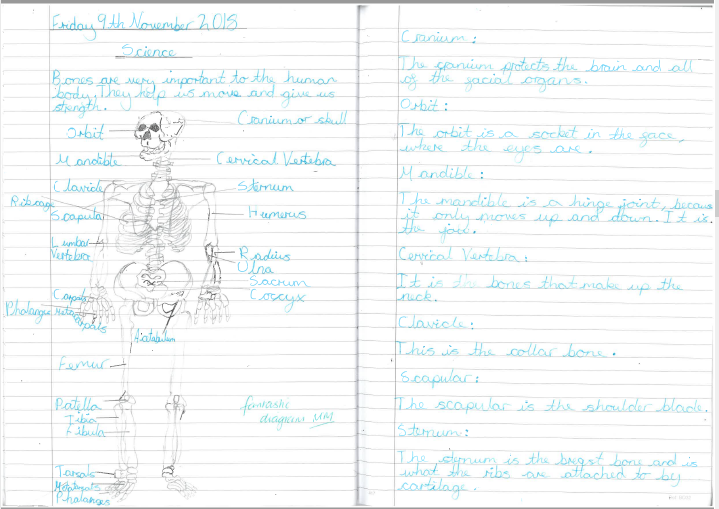 Friday 9th November 2018
Science
Bones are very important to the human
body. They help us move and give us
strength.
Cranium or skull
Orbit
Mandible
Cervical Vertebra
Clavicle
Sternum
Ribcage
Scapular
Humerus
Lumbar
Vertebra
Radius
Ulna
Sacrum
Coccyx
Carpals
Phalanges
Metacarpals
Acetabulum
Femur
Patella
Tibia
Fibula
fantastic
diagram
Tarsals
Metatarsals
Phalanges
Cranium:
The cranium protects the brain and all
of the facial organs.
Orbit:
The orbit is a socket in the face,
where the eyes are.
Mandible:
The mandible is a hinge joint, becaus
it only moves up and down. It is
the jaw.
Cervical Vertebra:
It is the bones that make up the
neck.
Clavicle:
This is the collar bone.
Scapular:
The scapular is the shoulder blade.
Sternum:
The sternum is the breast bone and is
what the ribs are attached to by
cartilage.